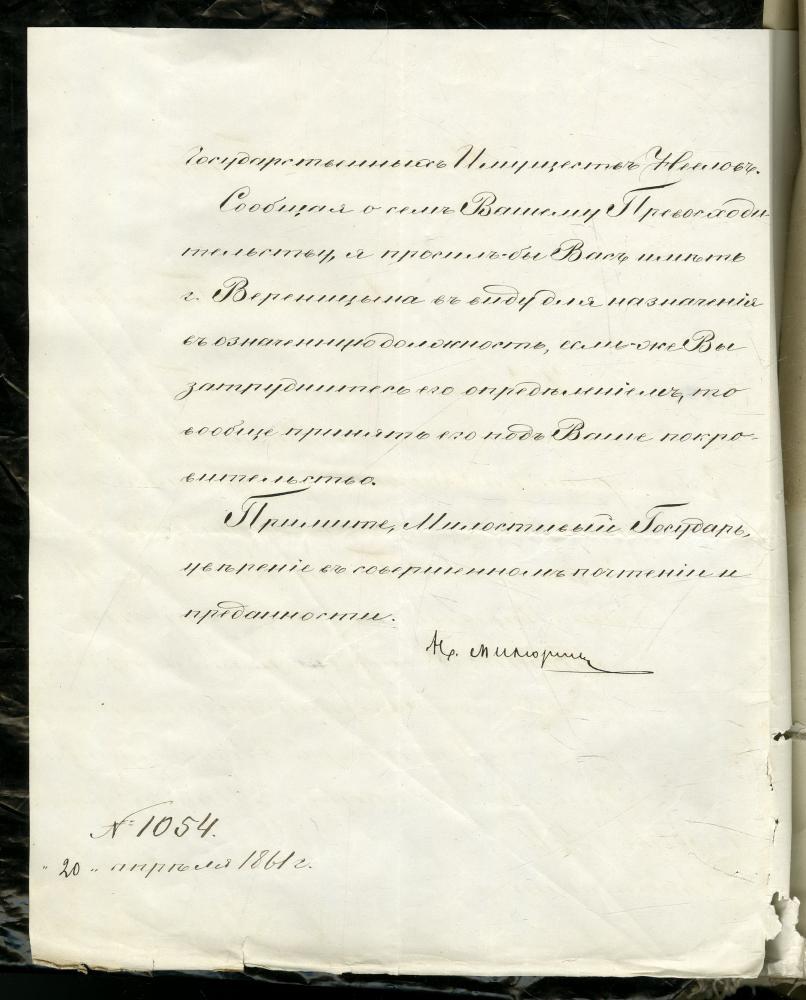 Государственныхъ Имуществъ Нееловъ.
Сообщая о семъ Вашему Превосходи-
тельству, я просилъ-бы Васъ имѣть
г. Вереницына въ виду для назначенія
въ означенную должность, если-же Вы
затруднитесь его опредѣленіемъ, то
вообще принять его подъ Ваше покро-
вительство.
Примите, Милостивый Государь,
увѣреніе въ совершенномъ почтеніи и
преданности.
Н. Милютинъ
№ 1054.
„20„ апрѣля 1861 г.